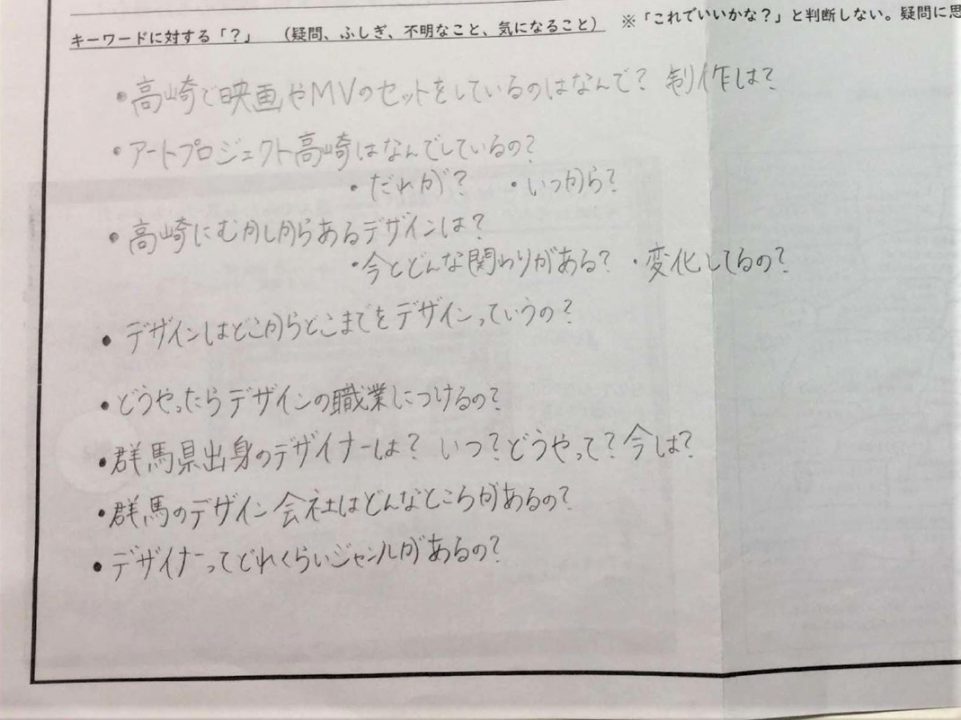 キーワードに対する「?」 (疑問、ふしぎ、不明なこと、気になること) ※「これでいいかな?」と判断しない。疑問に思
・高崎で映画やMVのセットをしているのはなんで? 制作は?
・アートプロジェクト高崎はなんでしているの?
・だれが? ・いつから?
・高崎にむかしからあるデザインは?
・今とどんな関わりがある? ・変化してるの?
・デザインはどこからどこまでをデザインっていうの?
・どうやったらデザインの職業につけるの?
・群馬県出身のデザイナーは? いつ?どうやって?今は?
・群馬のデザイン会社はどんなところがあるの?
・デザイナーってどれくらいジャンルがあるの?